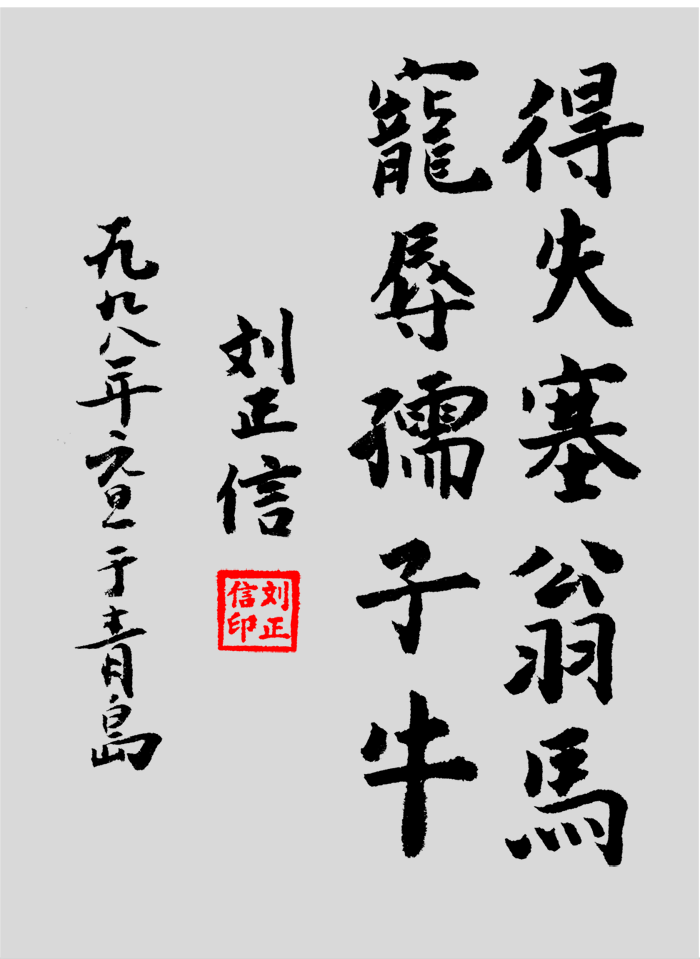 得失塞翁馬
寵辱孺子牛
刘正信
刘正信印
一九九八年元旦于青島